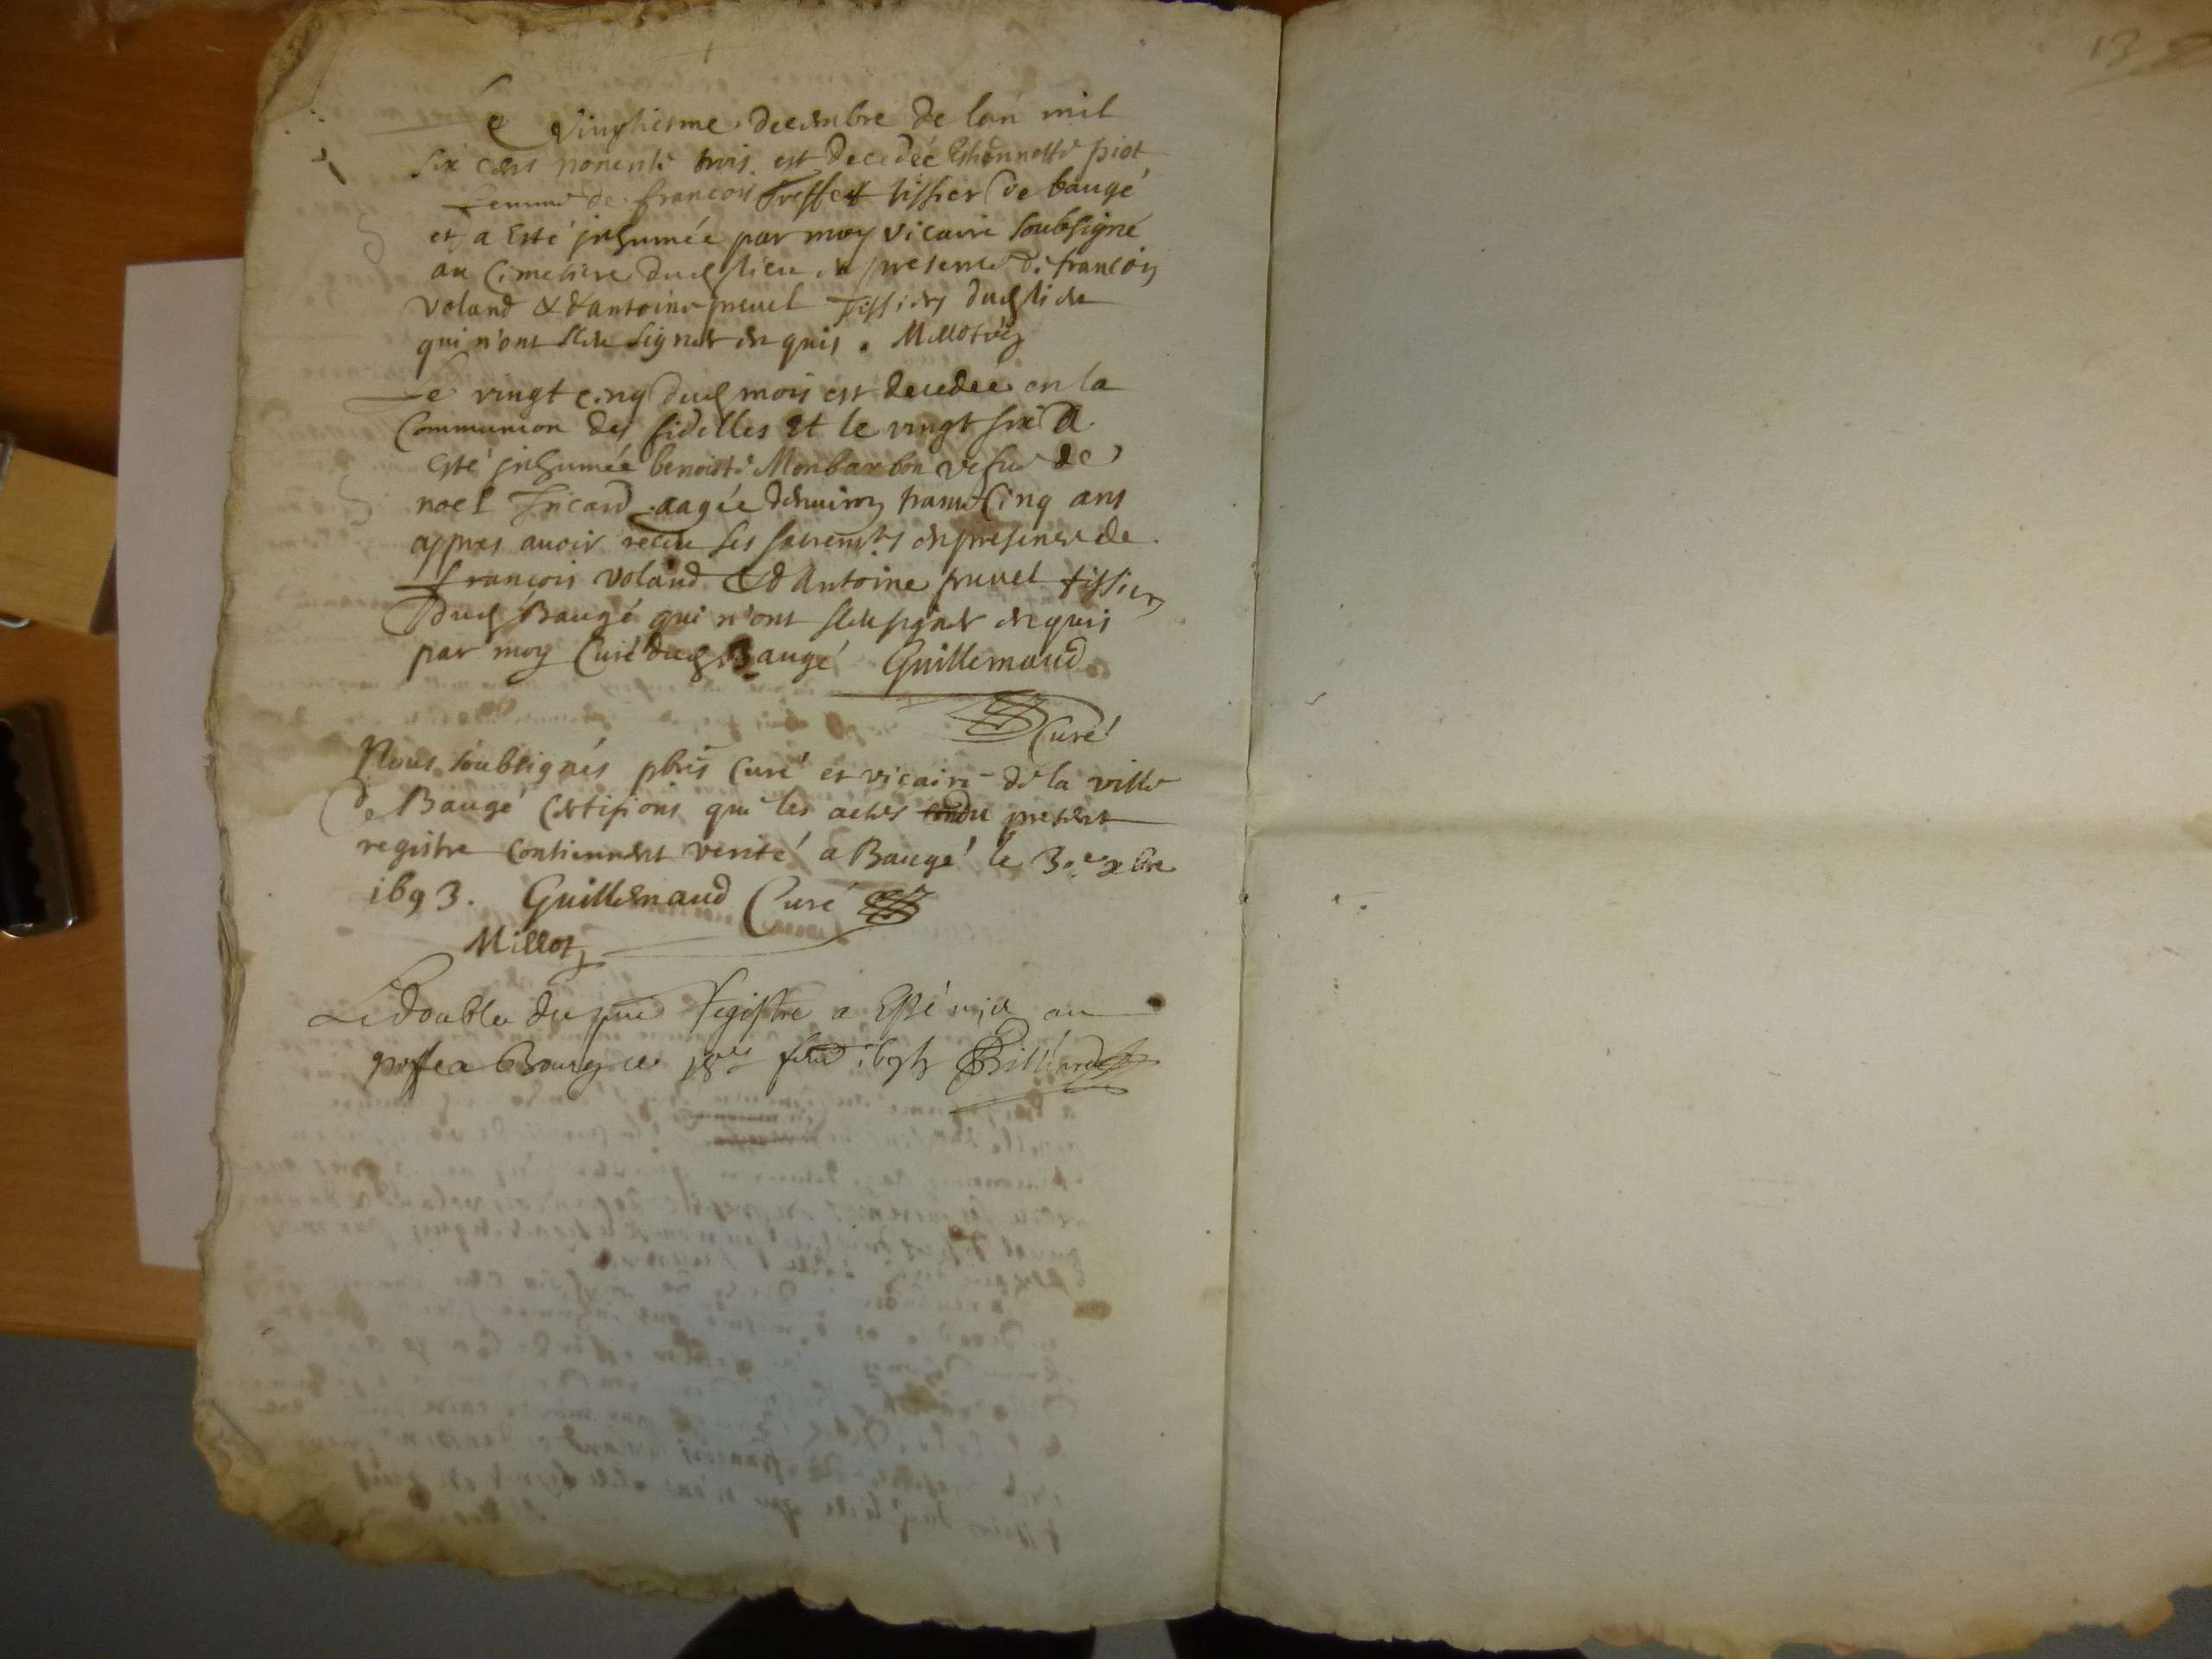 Le vingtiesme decembre de lan mil
six cens nonente trois est decedée Esthiennette piot
femme de françois tissier de baugé
et a esté inhumée par moy vicaire soubsigné
au Cimetiere dud lieu en presence de françois
voland & d'antoine pruuel tissiers dud lieu
qui n'ont sceu signer enquis . Millot
Le vingt cinq dud mois est decedée en la
Communion des fidelles Et le vingt six a
esté inhumée benoiste Monbarbon vefue de
noel fricard aagée denuiron trante cinq ans
appres auoir receu ses sacremts en presence de
françois voland & d'Antoine pruuel tissiers
dud Baugé qui n'ont sceu signer enquis
par moy Curé dud Baugé Guillemaud
Curé
Nous soubsignés pbres Curé et vicaire de la ville
de Baugé Certifions que les actes du present
registre contiennent verité a Baugé le 30e xbre
1693. Guillemaud Curé
Millot
Le double du pnt Registre a Esté mis au
greffe a Bourg ce Billiard
13